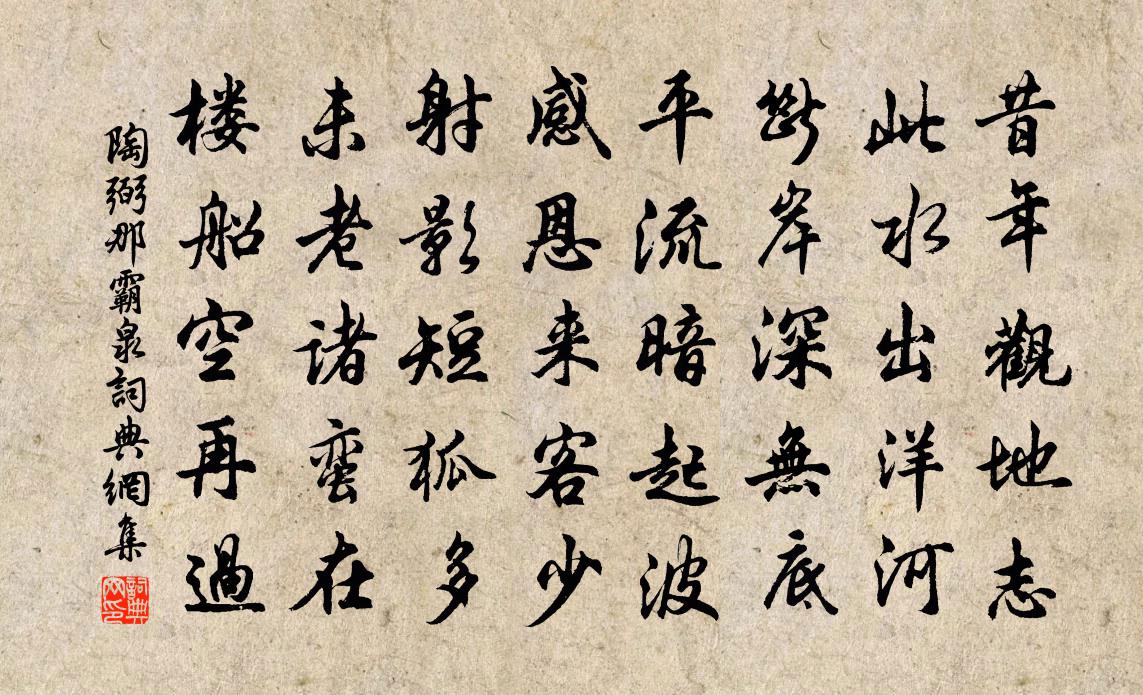 昔年觀地志
此水出洋河
斷岸深無底
平流暗起波
感恩来客少
射影短狐多
未老诸蛮在
楼船空再過
陶弼那霸泉詞典網集
詞典
网印